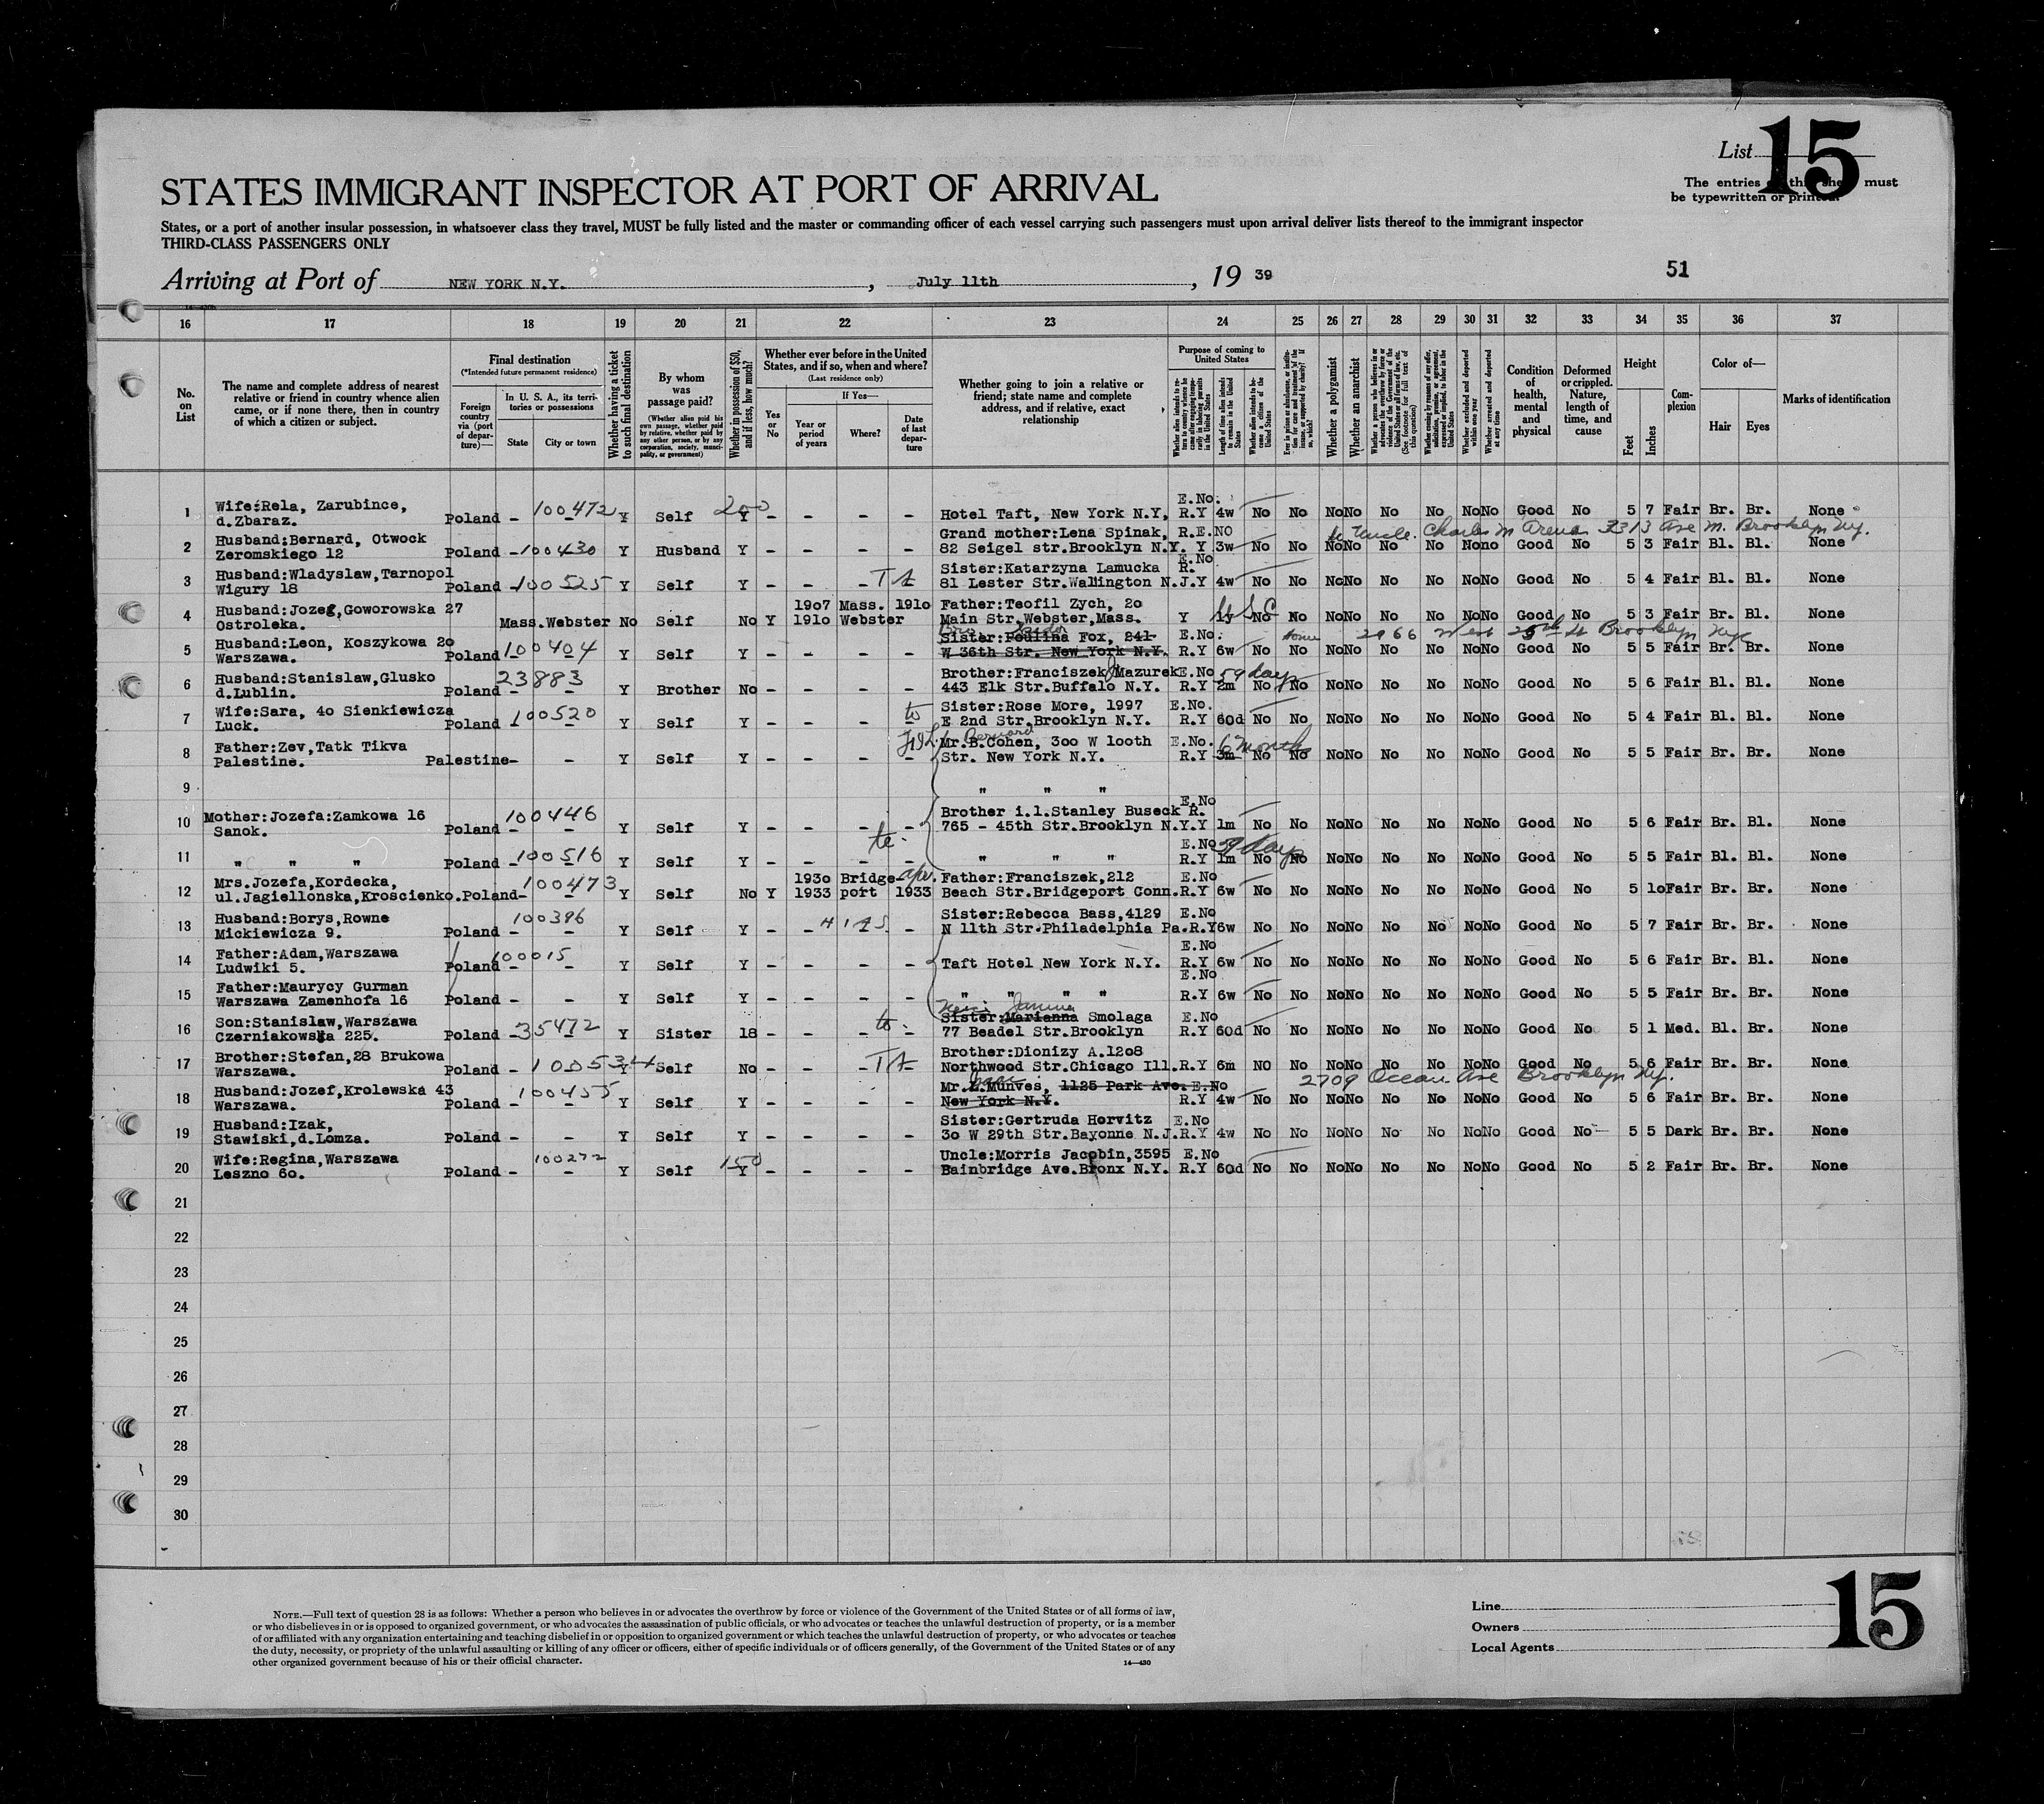 List 15
The entries must
be typewritten or
STATES IMMIGRANT INSPECTOR AT PORT OF ARRIVAL
States, or a port of another insular possession, in whatsoever class they travel, MUST be fully listed and the master or commanding officer of each vessel carrying such passengers must upon arrival deliver lists thereof to the immigrant inspector
THIRD-CLASS PASSENGERS ONLY
Arriving at Port of NEW YORK N.Y. , July 11th , 19 39
51
16 17 18 19 20 21 22 23 24 25 26 27 28 29 30 31 32 33 34 35 36 37
No. on List
The name and complete address of nearest relative or friend in country whence alien came, or if none there, then in country of which a citizen or subject.
Final destination
(*Intended future permanent residence)
Foreign country via (port of departure)—
In U. S. A., its territories or possessions
State City or town
Whether having a ticket to such final destination
By whom was passage paid?
(Whether alien paid his own passage, whether paid by relative, whether paid by any other person, or by any corporation, society, municipality, or government)
Whether in possession of $50, and if less, how much?
Whether ever before in the United States, and if so, when and where?
(Last residence only)
Yes or No
If Yes—
Year or period of years
Where?
Date of last departure
Whether going to join a relative or friend; state name and complete address, and if relative, exact relationship
Purpose of coming to United States
Whether a polygamist
Whether an anarchist
Condition of health, mental and physical
Deformed or crippled. Nature, length of time, and cause
Height
Feet Inches
Complexion
Color of—
Hair Eyes
Marks of identification
1 Wife:Rela, Zarubince, d.Zbaraz. Poland - 100472 - Y Self 200 Y - - - - Hotel Taft, New York N.Y, E.No. R.Y 4w No No No No No No No No Good No 5 7 Fair Br. Br. None
to Uncle. Charles M Arena 3313 Ave M. Brooklyn Ny.
2 Husband:Bernard, Otwock Zeromskiego 12 Poland - 100430 Y Husband Y - - - - Grand mother:Lena Spinak, 82 Seigel str.Brooklyn N.Y. R.E.NO Y 3w No No No No No No No no Good No 5 3 Fair Bl. Bl. None
3 Husband:Wladyslaw,Tarnopol Wigury 18 Poland - 100525 Y Self Y - - - - Sister:Katarzyna Lamucka 81 Lester Str.Wallington N.J. E.No R. Y 4w No No No No No No No No Good No 5 4 Fair Bl. Bl. None
4 Husband:Jozef,Goworowska 27 Ostroleka. Mass. Webster No Self No Y 1907 1910 Mass. Webster 1910 Father:Teofil Zych, 20 Main Str.Webster,Mass. Y 1y USC No No No No No No No No Good No 5 3 Fair Br. Bl. None
5 Husband:Leon, Koszykowa 20 Warszawa. Poland 100404 Y Self Y - - - - Sister:Poulina Fox, 241- W 36th Str. New York N.Y. E.No. R.Y 6w No No No No No No No No Good No 5 5 Fair Br. Br. None
2966 West 25th St Brooklyn Nyc
6 Husband:Stanislaw,Glusko d.Lublin. 23883 Poland - - Y Brother No - - - - Brother:Franciszek Mazurek 443 Elk Str.Buffalo N.Y. E.No R.Y 2m 59 days No No No No No No No No Good No 5 6 Fair Bl. Bl. None
7 Wife:Sara, 40 Sienkiewicza Luck. Poland 100520 Y Self Y - - - to - Sister:Rose More, 1997 E 2nd Str.Brooklyn N.Y. E.No. R.Y 60d No No No No No No No No Good No 5 4 Fair Bl. Bl. None
8 Father:Zev,Tatk Tikva Palestine. Palestine- - Y Self Y - - - - Bernard Mr.B.Cohen, 300 W 100th Str. New York N.Y. E.No. R.Y 3m 6 Months No No No No No No No No Good No 5 5 Fair Br. Br. None
9 " " "
10 Mother:Jozefa:Zamkowa 16 Sanok. 100446 Poland - - Y Self Y - - - - Brother i.l.Stanley Buseck 765 - 45th Str.Brooklyn N.Y. E.No R. Y 1m No No No No No No No No Good No 5 6 Fair Br. Bl. None
11 " " " Poland - 100516 Y Self Y - - - - " " " E.No R.Y 1m 59 days No No No No No No No No Good No 5 5 Fair Bl. Bl. None
12 Mrs.Jozefa,Kordecka, ul.Jagiellonska,Kroscienko.Poland- 100473 - Y Self No Y 1930 1933 Bridgeport apr. 1933 Father:Franciszek,212 Beach Str.Bridgeport Conn. E.No R.Y 6w No No No No No No No No Good No 5 10 Fair Br. Br. None
13 Husband:Borys,Rowne Mickiewicza 9. 100396 Poland - - Y Self Y - - - - Sister:Rebecca Bass,4129 N 11th Str.Philadelphia Pa. E.No R.Y 6w No No No No No No No No Good No 5 7 Fair Br. Br. None
14 Father:Adam,Warszawa Ludwiki 5. 100015 Poland - - Y Self Y - - - - Taft Hotel New York N.Y. E.No R.Y 6w No No No No No No No No Good No 5 6 Fair Br. Bl. None
15 Father:Maurycy Gurman Warszawa Zamenhofa 16 Poland - - Y Self Y - - - - " " " " E.No R.Y 6w No No No No No No No No Good No 5 5 Fair Br. Br. None
16 Son:Stanislaw,Warszawa Czerniakowska 225. Poland -35472 Y Sister 18 - - - to - Janina Sister:Marianna Smolaga 77 Beadel Str.Brooklyn E.No R.Y 60d No No No No No No No No Good No 5 1 Med. Bl. Br. None
17 Brother:Stefan,28 Brukowa Warszawa. Poland - 100534 Y Self No - - - - Brother:Dionizy A.1208 Northwood Str.Chicago Ill. R.Y 6m NO No No No No No No No Good No 5 6 Fair Br. Br. None
2709 Ocean Ave Brooklyn Ny.
18 Husband:Jozef,Krolewska 43 Warszawa. Poland - 100455 Y Self Y - - - - Mr.I.Munves, 1125 Park Ave. New York N.Y. E.No R.Y 4w No No No No No No No No Good No 5 6 Fair Br. Br. None
19 Husband:Izak, Stawiski,d.Lomza. Poland - - Y Self Y - - - - Sister:Gertruda Horvitz 30 W 29th Str.Bayonne N.J. E.No R.Y 4w No No No No No No No No Good No 5 5 Dark Br. Br. None
20 Wife:Regina,Warszawa Leszno 60. 100272 Poland - - Y Self 150 Y - - - - Uncle:Morris Jacobin,3595 Bainbridge Ave.Bronx N.Y. E.No R.Y 60d No No No No No No No No Good No 5 2 Fair Br. Br. None
21
22
23
24
25
26
27
28
29
30
NOTE.—Full text of question 28 is as follows: Whether a person who believes in or advocates the overthrow by force or violence of the Government of the United States or of all forms of law,
or who disbelieves in or is opposed to organized government, or who advocates the assassination of public officials, or who advocates or teaches the unlawful destruction of property, or is a member
of or affiliated with any organization entertaining and teaching disbelief in or opposition to organized government or which teaches the unlawful destruction of property, or who advocates or teaches
the duty, necessity, or propriety of the unlawful assaulting or killing of any officer or officers, either of specific individuals or of officers generally, of the Government of the United States or of any
other organized government because of his or their official character.
14—430
Line
Owners
Local Agents
15